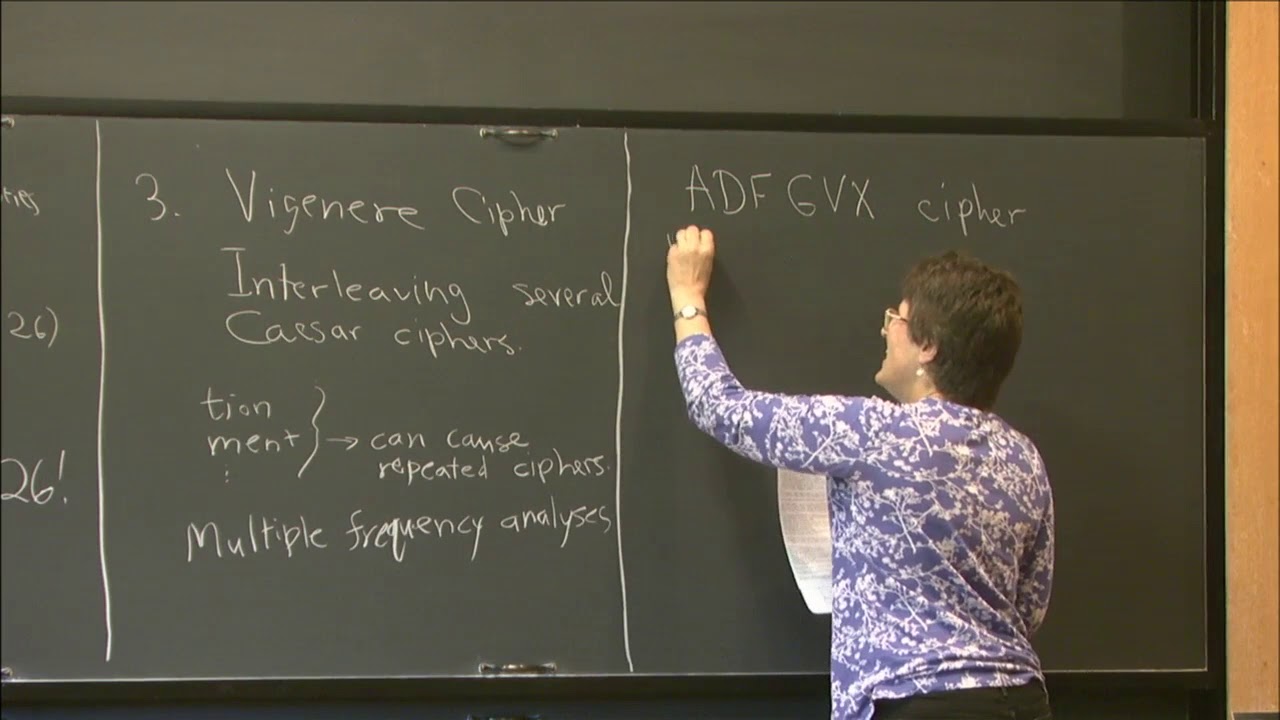 26)
26!
3. Vigenere Cipher
Interleaving several
Caesar ciphers.
tion
ment → can cause
⋮ repeated ciphers.
Multiple frequency analyses
ADFGVX cipher